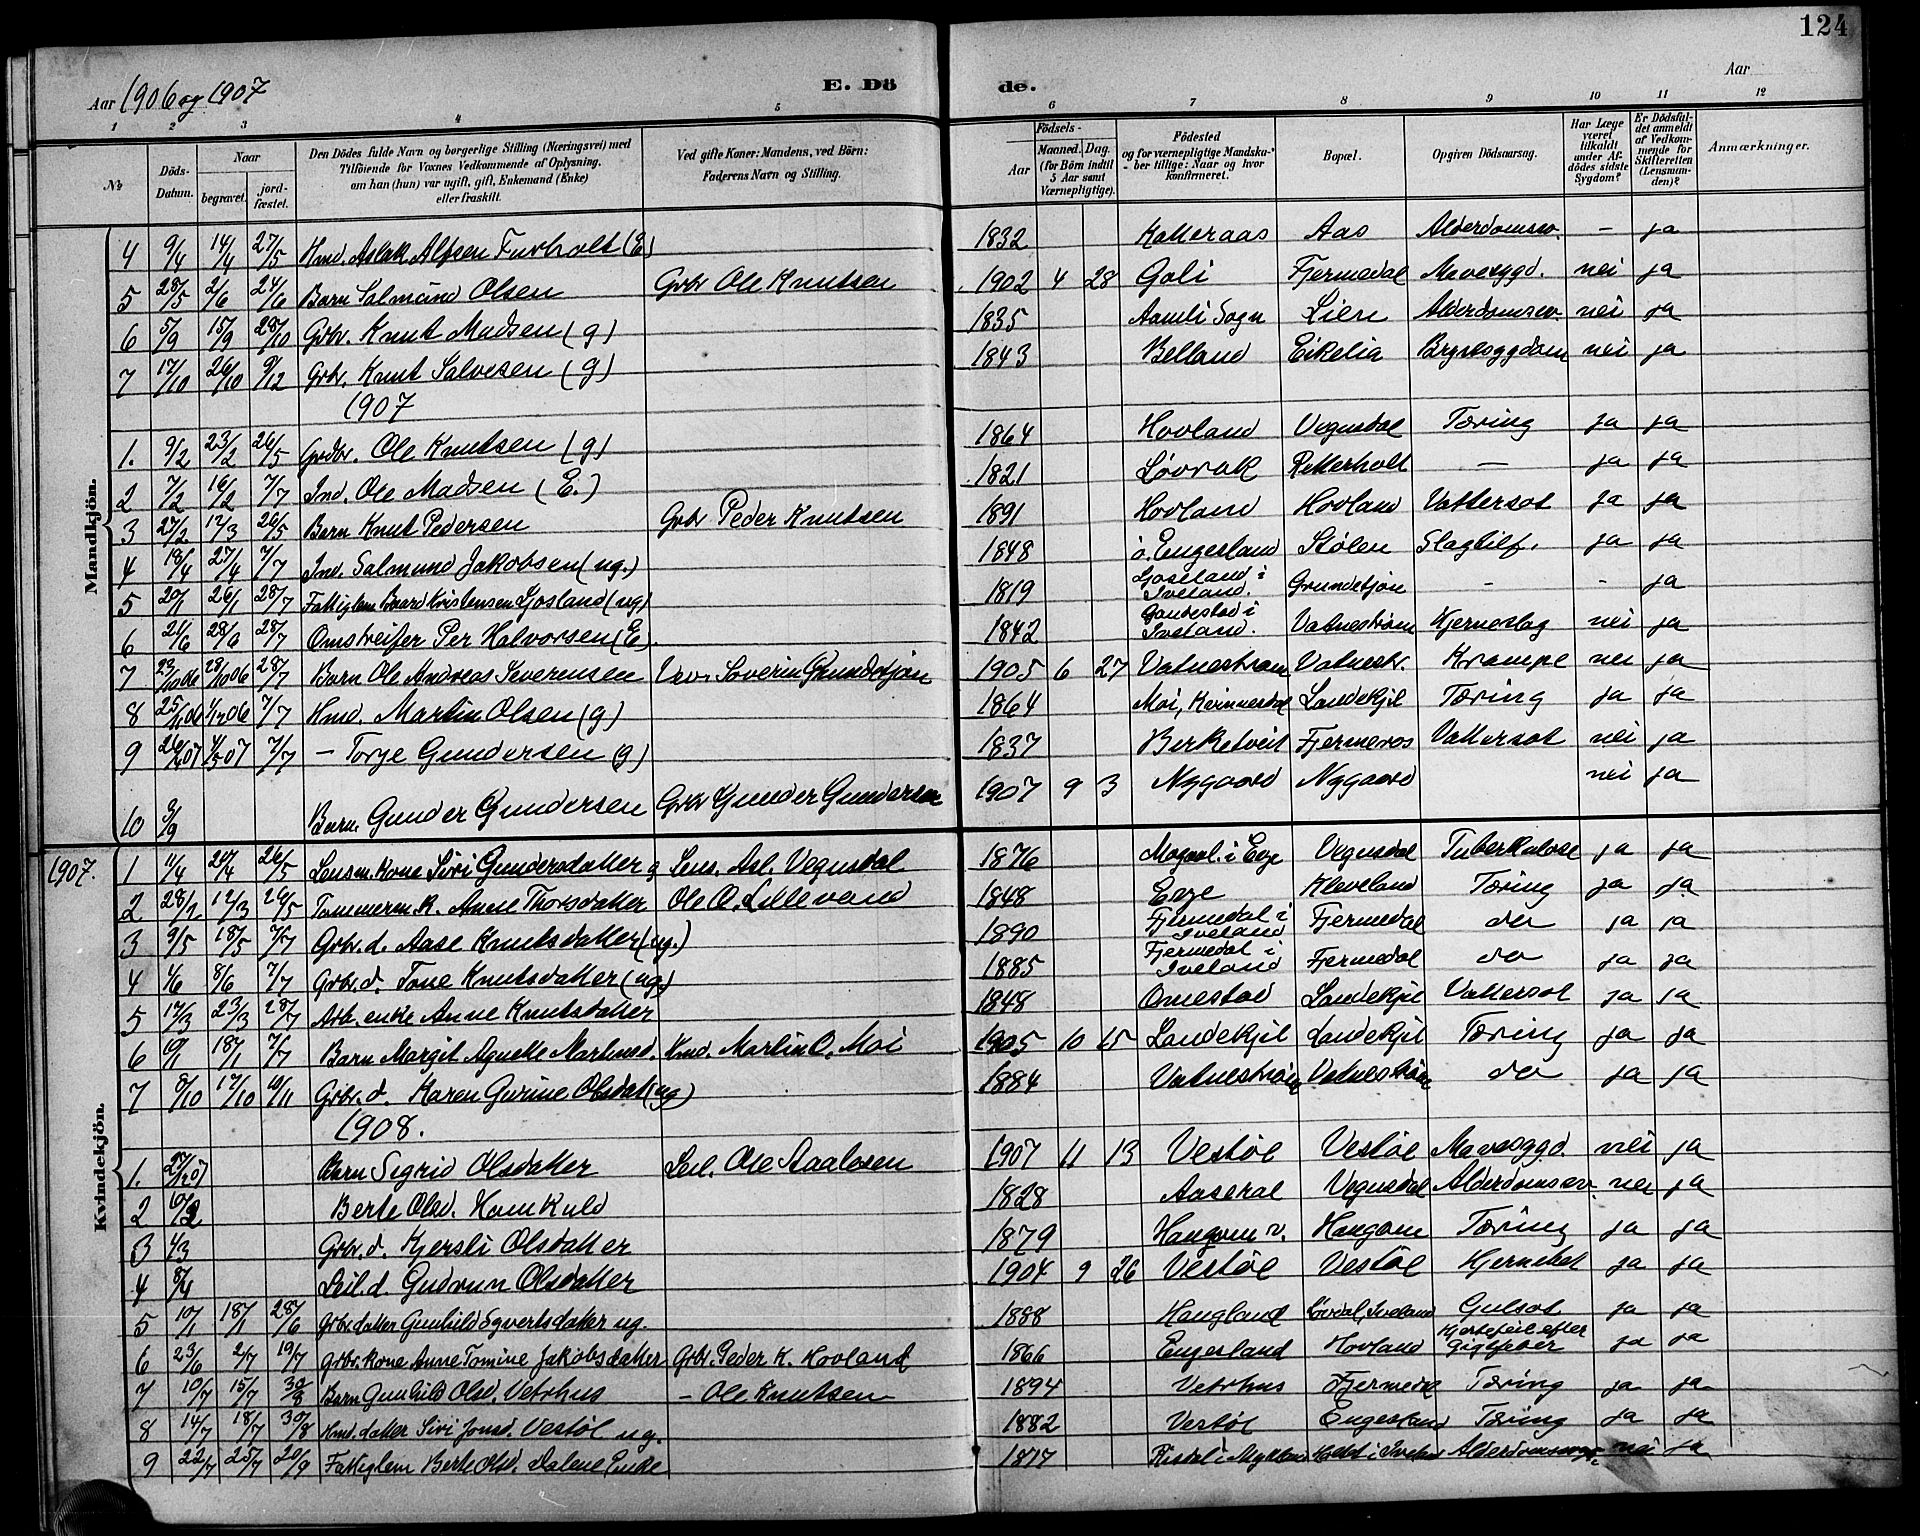 124
Aar 1906 og 1907
E. Dö de.
Aar
1 2 3 4 5 6 7 8 9 10 11 12
№
Döds-Datum.
Naar
begravet.
jordfæstet.
Den Dödes fulde Navn og borgerlige Stilling (Næringsvei) med Tilföiende for Voxnes Vedkommende af Oplysning, om han (hun) var ugift, gift, Enkemand (Enke) eller fraskilt.
Ved gifte Koner: Mandens, ved Börn: Faderens Navn og Stilling.
Födsels-
Aar
Maaned. Dag.
(for Börn indtil 5 Aar samt Værnepligtige).
Födested og for værnepligtige Mandskaber tillige: Naar og hvor konfirmeret.
Bopæl.
Opgiven Dödsaarsag.
Har Læge været tilkaldt under Afdödes sidste Sygdom?
Er Dödsfaldet anmeldt af Vedkommende for Skifteretten (Lensmanden)?
Anmærkninger.
Mandkjön.
4 9/4 14/4 27/5 Hmd. Aslak Alfsen Furholt (E) 1832 Katteraas Aas Alderdomssv. - ja
5 28/5 2/6 24/6 Barn Salmund Olsen Grbr Ole Knutsen 1902 4 28 Goli Fjermedal Mavesygd. nei ja
6 5/9 15/9 28/10 Grbr. Knut Madsen (g) 1835 Aamli Sogn Lien Alderdomssv. nei ja
7 17/10 26/10 9/12 Grbr. Knut Salvesen (g) 1843 Belland Eikelia Brystsygdom nei ja
1907
1. 9/2 23/2 26/5 Grdbr. Ole Knutsen (g) 1864 Hovland Vegusdal Tæring ja ja
2 7/2 16/2 7/7 Ind. Ole Madsen (E.) 1821 Løvrak Retterholt - ja ja
3 27/2 12/3 26/5 Barn Knut Pedersen Grbr Peder Knutsen 1891 Hovland Hovland Vattersot ja ja
4 18/4 27/4 7/7 Ind. Salmund Jakobsen (ug.) 1848 ö. Engesland Stølen Slagtilf. ja ja
5 20/1 26/1 28/7 Fattiglem Baard Kristensen Ljosland (ug) 1819 Ljoseland i Iveland. Grundetjøn - - ja
6 21/6 28/6 28/7 Omstreifer Per Halvorsen (E) 1842 Gaudestad i Iveland. Vatnestrøm Hjerneslag nei ja
7 23/10 06 28/10 06 28/7 Barn Ole Andreas Severensen Severin Grundetjøn 1905 6 27 Vatnestrøm Vatnestr. Krampe nei ja
8 25/11 06 4/12 06 7/7 Hmd. Martin Olsen (g) 1864 Moi, Landekjil Tæring ja ja
9 07 07 7/7 - Torje Gundersen (g) 1837 Birketveit Fjermeros Vattersot nei ja
10 3/9 Barn Gunder Gundersen Grbr Gunder Gundersen 1907 9 3 Nygaard Nygaard nei ja
1907.
Kvindekjön.
1 11/4 20/4 26/5 Lensm. Kone Siri Gundersdatter g Lens. Asl. Vegusdal 1876 i Evje Vegusdal Tuberkulose ja ja
2 28/2 12/3 26/5 Tømmerm. K. Anne Thorsdatter Ole O. Lillevand 1848 Evje Kleveland Tæring ja ja
3 9/5 18/5 7/7 Grbr. d. Aase Knutsdatter (ug.) 1890 Fjermedal i Iveland Fjermedal do ja ja
4 4/6 8/6 7/7 Grbr. d. Tone Knutsdatter (ug.) 1885 Fjermedal i Iveland Fjermedal do ja ja
5 17/3 23/3 28/7 Arb. enke Anne Knutsdatter 1848 Omestad Landekjil Vattersot ja ja
6 10/1 18/1 7/7 Barn Margit Agnette Martinsd. Hmd. Martin O. Moi 1905 10 15 Landekjil Landekjil Tæring ja ja
7 8/10 17/10 10/11 Grbr. d. Karen Gurine Olsdat (ug) 1884 Vatnestrøm Vatnestrøm do ja ja
1908.
1. 27/12 07 Barn Sigrid Olsdatter Leil. Ole Aaalosen 1907 11 13 Vestøl Vestøl Mavesygd. nei ja
2 10/2 Berte Olsd. Homkuld 1828 Aaseral Vegusdal Alderdomssv. nei ja
3 4/3 Grbr. d. Kjersti Olsdatter 1879 Haugom v. Haugom Tæring ja ja
4 8/4 Leil. d. Gudrun Olsdatter 1904 9 26 Vestøl Vestøl Hjernebet ja ja
5 10/1 18/1 28/6 Grbr datter Gunhild Sgvertsdatter ug. 1888 Haugland Iveland Gulsot ja ja
6 23/6 2/7 19/7 Grbr. Kone Anne Tomine Jakobsdatter Grbr. Peder K. Hovland 1866 Engesland Hovland Hjertefeil efter Gigtfeber ja ja
7 10/7 15/7 30/8 Barn Gunhild Olsd. Vetrhus - Ole Knutsen 1894 Vetrhus Fjermedl Tæring ja ja
8 14/7 18/7 30/8 Hmd. datter Siri Jonsd. Vestøl ug. 1882 Vestøl Engesland Tæring ja ja
9 22/7 25/7 20/9 Fattiglem Berte Olsd. Dalene Enke i Iveland nei ja